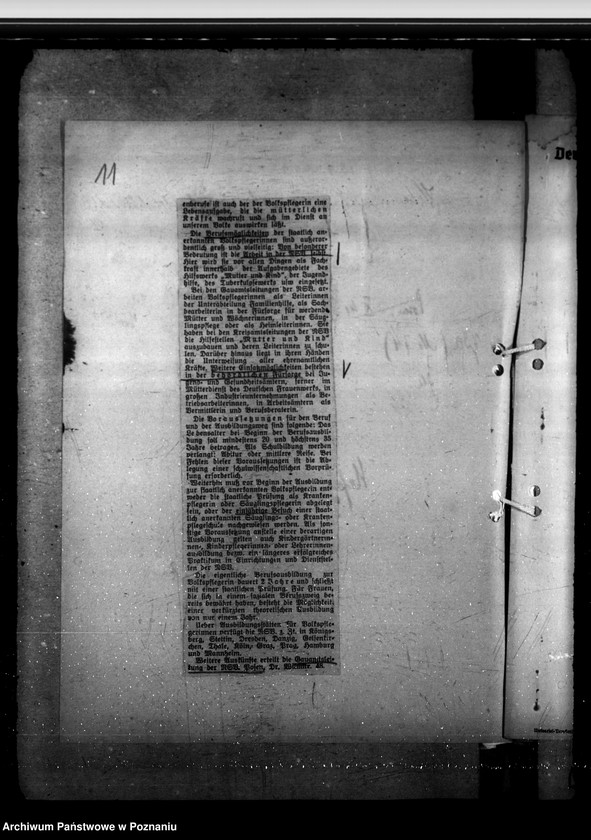 11
enberufe ist auch der der Volkspflegerin eine
Lebensaufgabe, die die mütterlichen
Kräfte wachruft und sich im Dienst an
unserem Volke auswirken läßt.
Die Berufsmöglichkeiten der staatlich an-
erkannten Volkspflegerinnen sind außeror-
dentlich groß und vielseitig: Von besonderer
Bedeutung ist die Arbeit in der NSV
Hier wird sie vor allen Dingen als Fach-
kraft innerhalb der Aufgabengebiete des
Hilfswerks „Mutter und Kind“, der Jugend-
hilfe, des Tuberkulosewerks usw eingesetzt.
Bei den Gauamtsleitungen der NSV. ar-
beiten Volkspflegerinnen als Leiterinnen
der Unterabteilung Familienhilfe, als Sach-
bearbeiterin in der Fürsorge für werdende
Mütter und Wöchnerinnen, in der Säug-
lingspflege oder als Heimleiterinnen. Sie
haben bei den Kreisamtsleitungen der NSV
die Hilfsstellen „Mutter und Kind“
auszubauen und deren Leiterinnen zu schu-
len. Darüber hinaus liegt in ihren Händen
die Unterweisung aller ehrenamtlichen
Kräfte. Weitere Einsatzmöglichkeiten bestehen
in der behördlichen Fürsorge bei Ju-
gend- und Gesundheitsämtern, ferner im
Mütterdienst des Deutschen Frauenwerks, in
großen Industrieunternehmungen als Be-
triebsarbeiterinnen, in Arbeitsämtern als
Vermittlerin und Berufsberaterin.
Die Voraussetzungen für den Beruf
und der Ausbildungsweg sind folgende: Das
Lebensalter bei Beginn der Berufsausbil-
dung soll mindestens 20 und höchstens 35
Jahre betragen. Als Schulbildung werden
verlangt: Abitur oder mittlere Reife. Bei
Fehlen dieser Voraussetzungen ist die Ab-
legung einer schulwissenschaftlichen Vorprü-
fung erforderlich.
Weiterhin muß vor Beginn der Ausbildung
zur staatlich anerkannten Volkspflegerin ent-
weder die staatliche Prüfung als Kranken-
pflegerin oder Säuglingspflegerin abgelegt
sein, oder der einjährige Besuch einer staat-
lich anerkannten Säuglings- oder Kranken-
pflegeschule nachgewiesen werden. Als son-
stige Voraussetzung anstelle einer derartigen
Ausbildung gelten auch Kindergärtnerin-
nen-, Kinderpflegerinnen- oder Lehrerinnen-
ausbildung bezw. ein längeres erfolgreiches
Praktikum in Einrichtungen und Dienststel-
len der NSV.
Die eigentliche Berufsausbildung zur
Volkspflegerin dauert 2 Jahre und schließt
mit einer staatlichen Prüfung. Für Frauen,
die sich in einem sozialen Berufszweig be-
reits bewährt haben, besteht die Möglichkeit
einer verkürzten theoretischen Ausbildung
von nur einem Jahr.
Ueber Ausbildungsstätten für Volkspfle-
gerinnen verfügt die NSV. z. Zt. in Königs-
berg, Stettin, Dresden, Danzig, Gelsenkir-
chen, Thale, Köln, Graz, Prag, Hamburg
und Mannheim.
Weitere Auskünfte erteilt die Gauamtslei-
tung der NSV. Posen, Dr.
Archiwum Państwowe w Poznaniu